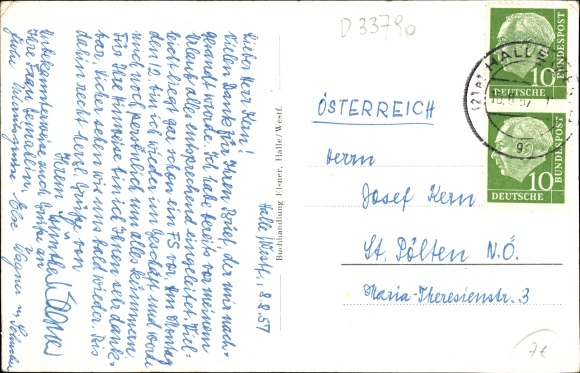 D 33790
Halle/Westf., 8.8.57
Lieber Herr Kern!
Vielen Dank für Ihren Brief, der mir nach-
gesandt wurde. Ich habe bereits vor meinem
Urlaub alles entsprechend eingeleitet. Viel-
leicht liegt gar schon ein FS vor. Am Montag
den 12. bin ich wieder im Geschäft und werde
mich noch persönlich um alles kümmern.
Für Ihre Hinweise bin ich Ihnen sehr dank-
bar. Sicher sehen wir uns bald wieder. Bis
dahin recht herzl. Grüße von
Ihrem
Unbekannterweise auch Grüße an
Ihre Frau Gemahlin.
Buchhandlung Elsner, Halle/Westf.
ÖSTERREICH
Herrn
Josef Kern
St. Pölten N.Ö.
Maria-Theresienstr. 3
10
DEUTSCHE
BUNDESPOST
10
DEUTSCHE
BUNDESPOST
HALLE
7€